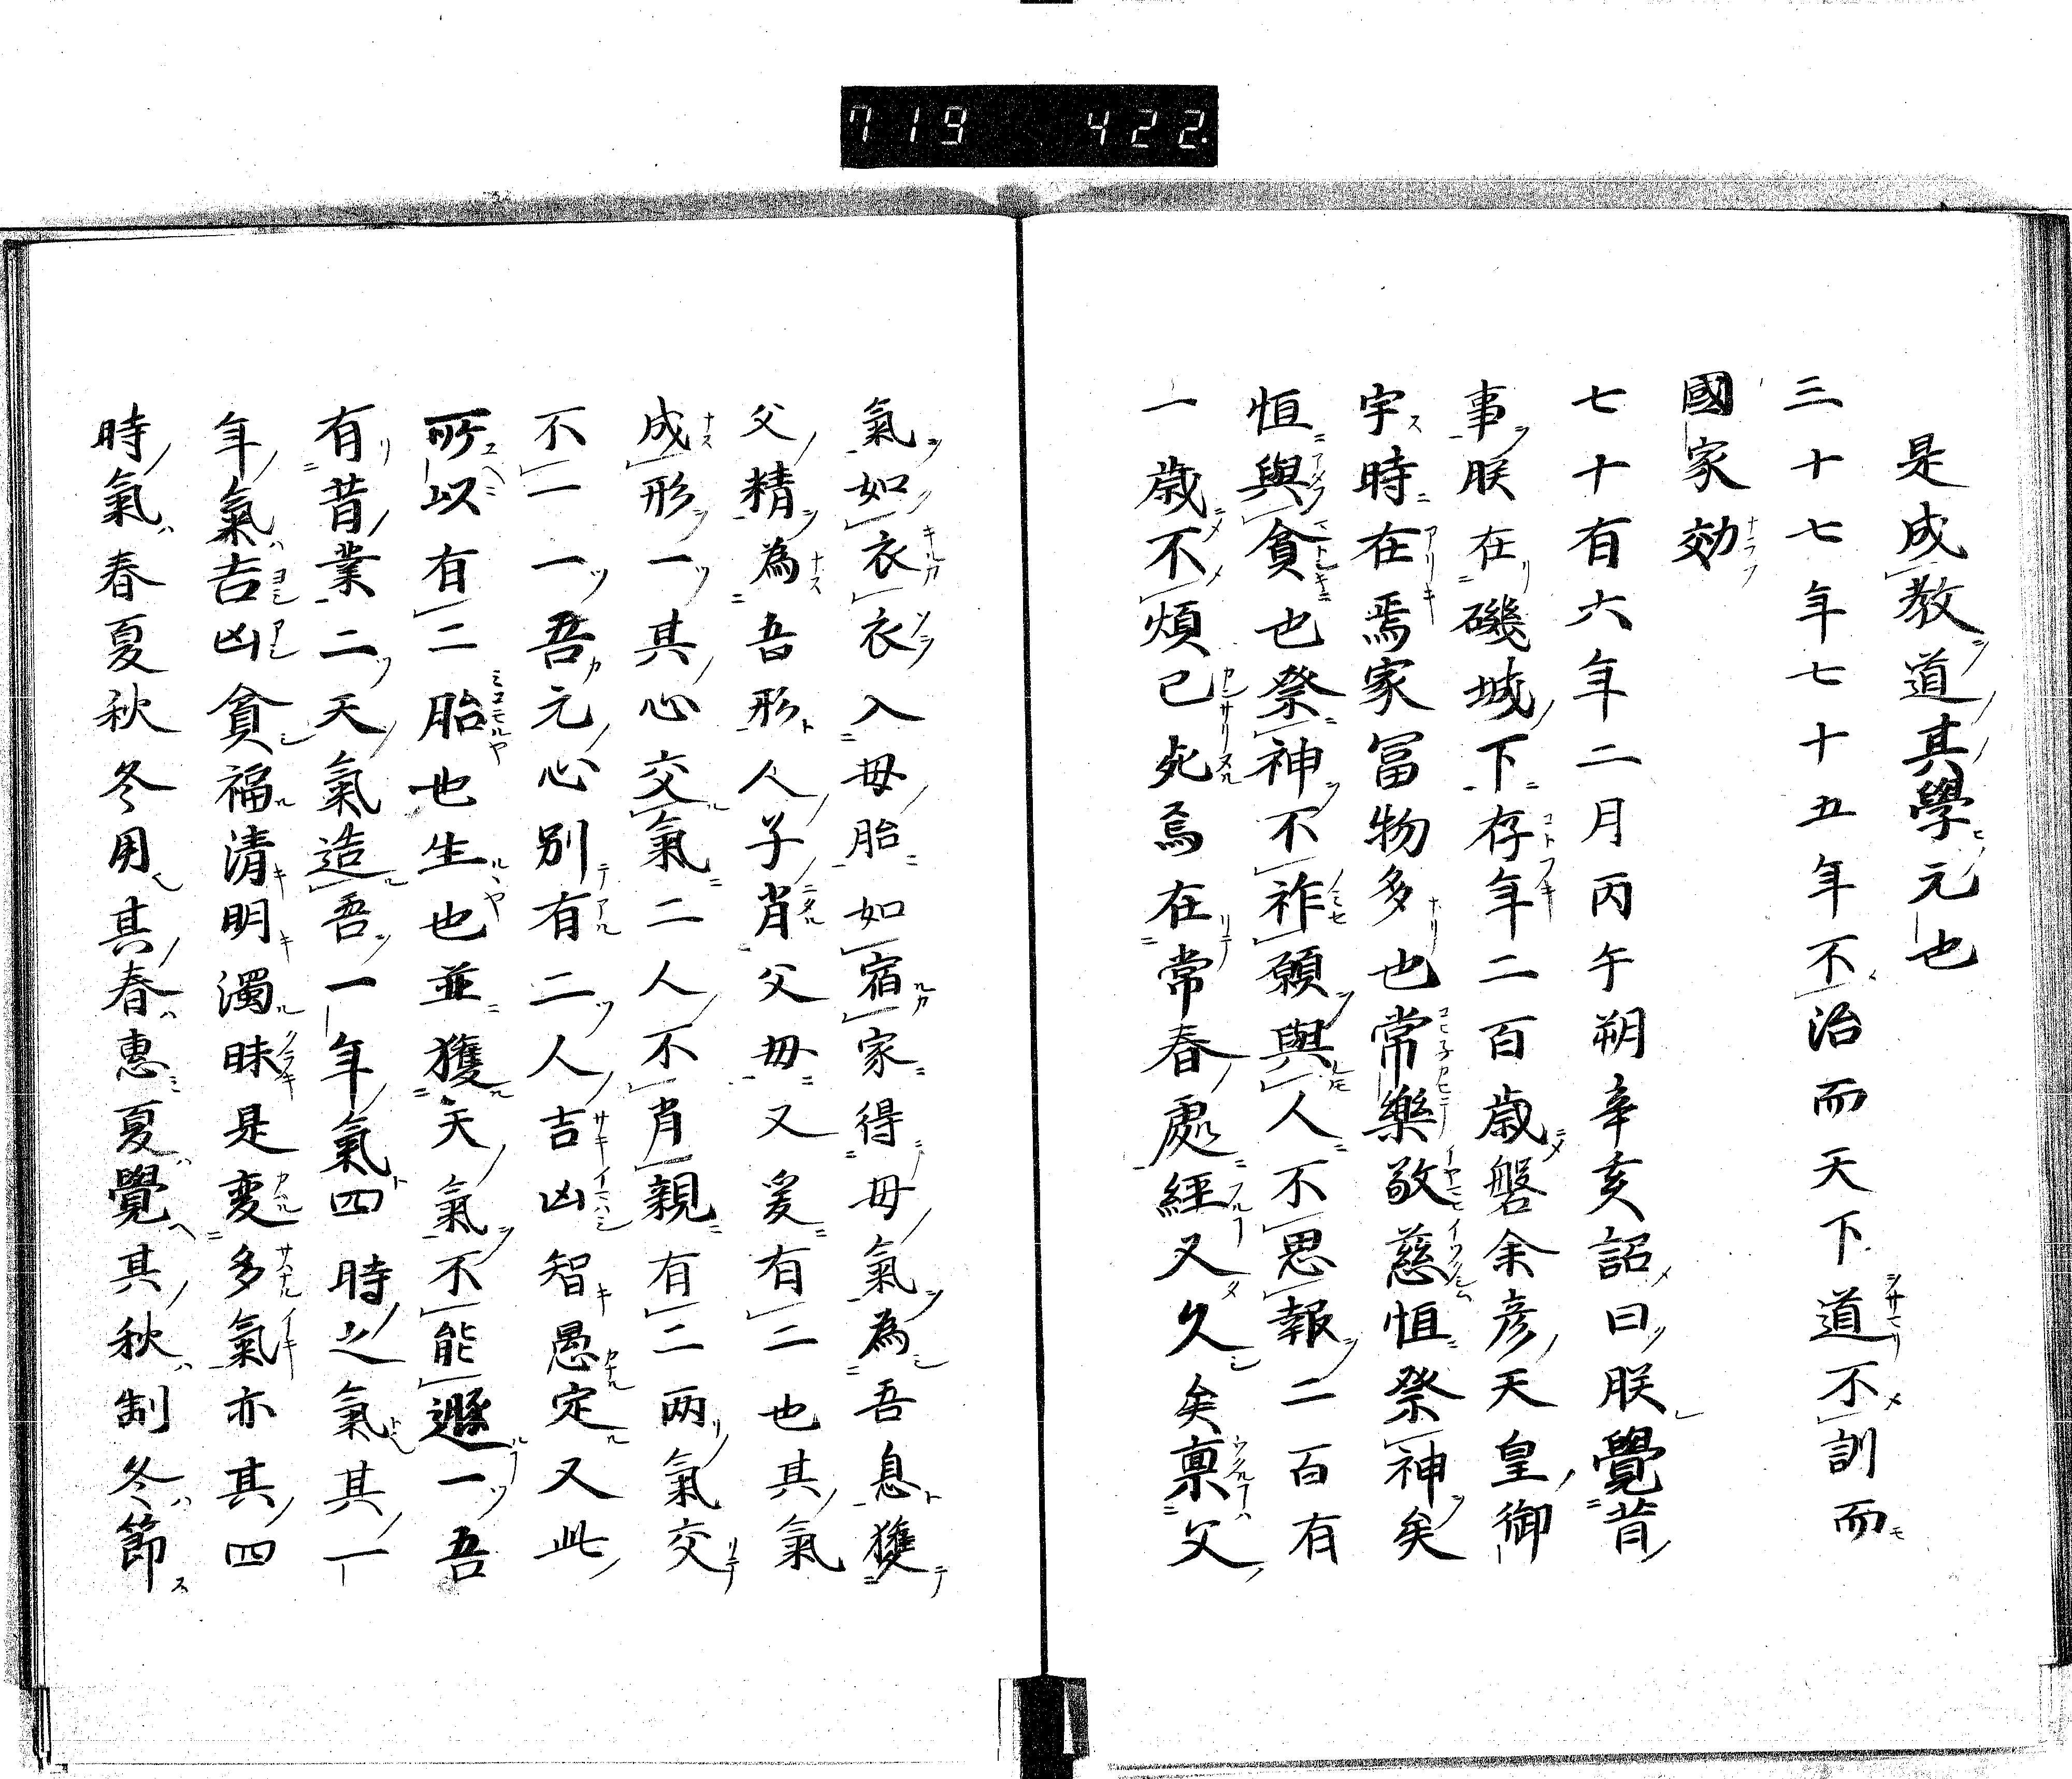 719 422
是成教道其學元也
三十七年七十五年不治而天下道不訓而
國家効
七十有六年二月丙午朔辛亥詔曰朕覺昔
事朕在磯城下存年二百歳磐余彦天皇御
宇時在焉家冨物多也常樂敬慈恒祭神矣
恒與貧也祭神不祚願與人不思報二百有
一歳不煩已死焉在常春處經又久矣禀父
氣如衣衣入母胎如宿家得母氣為吾息獲
父精為吾形人子肖父母又爰有二也其氣
成形一其心交氣二人不肖親有二两氣交
不一一吾元心別有二人吉凶智愚定又此
所以有二胎也生也並獲天氣不能遯一吾
有昔業二天氣造吾一年氣四時之氣其一
年氣吉凶貧福清明濁昧是変多氣亦其四
時氣春夏秋冬用其春惠夏覺其秋制冬節